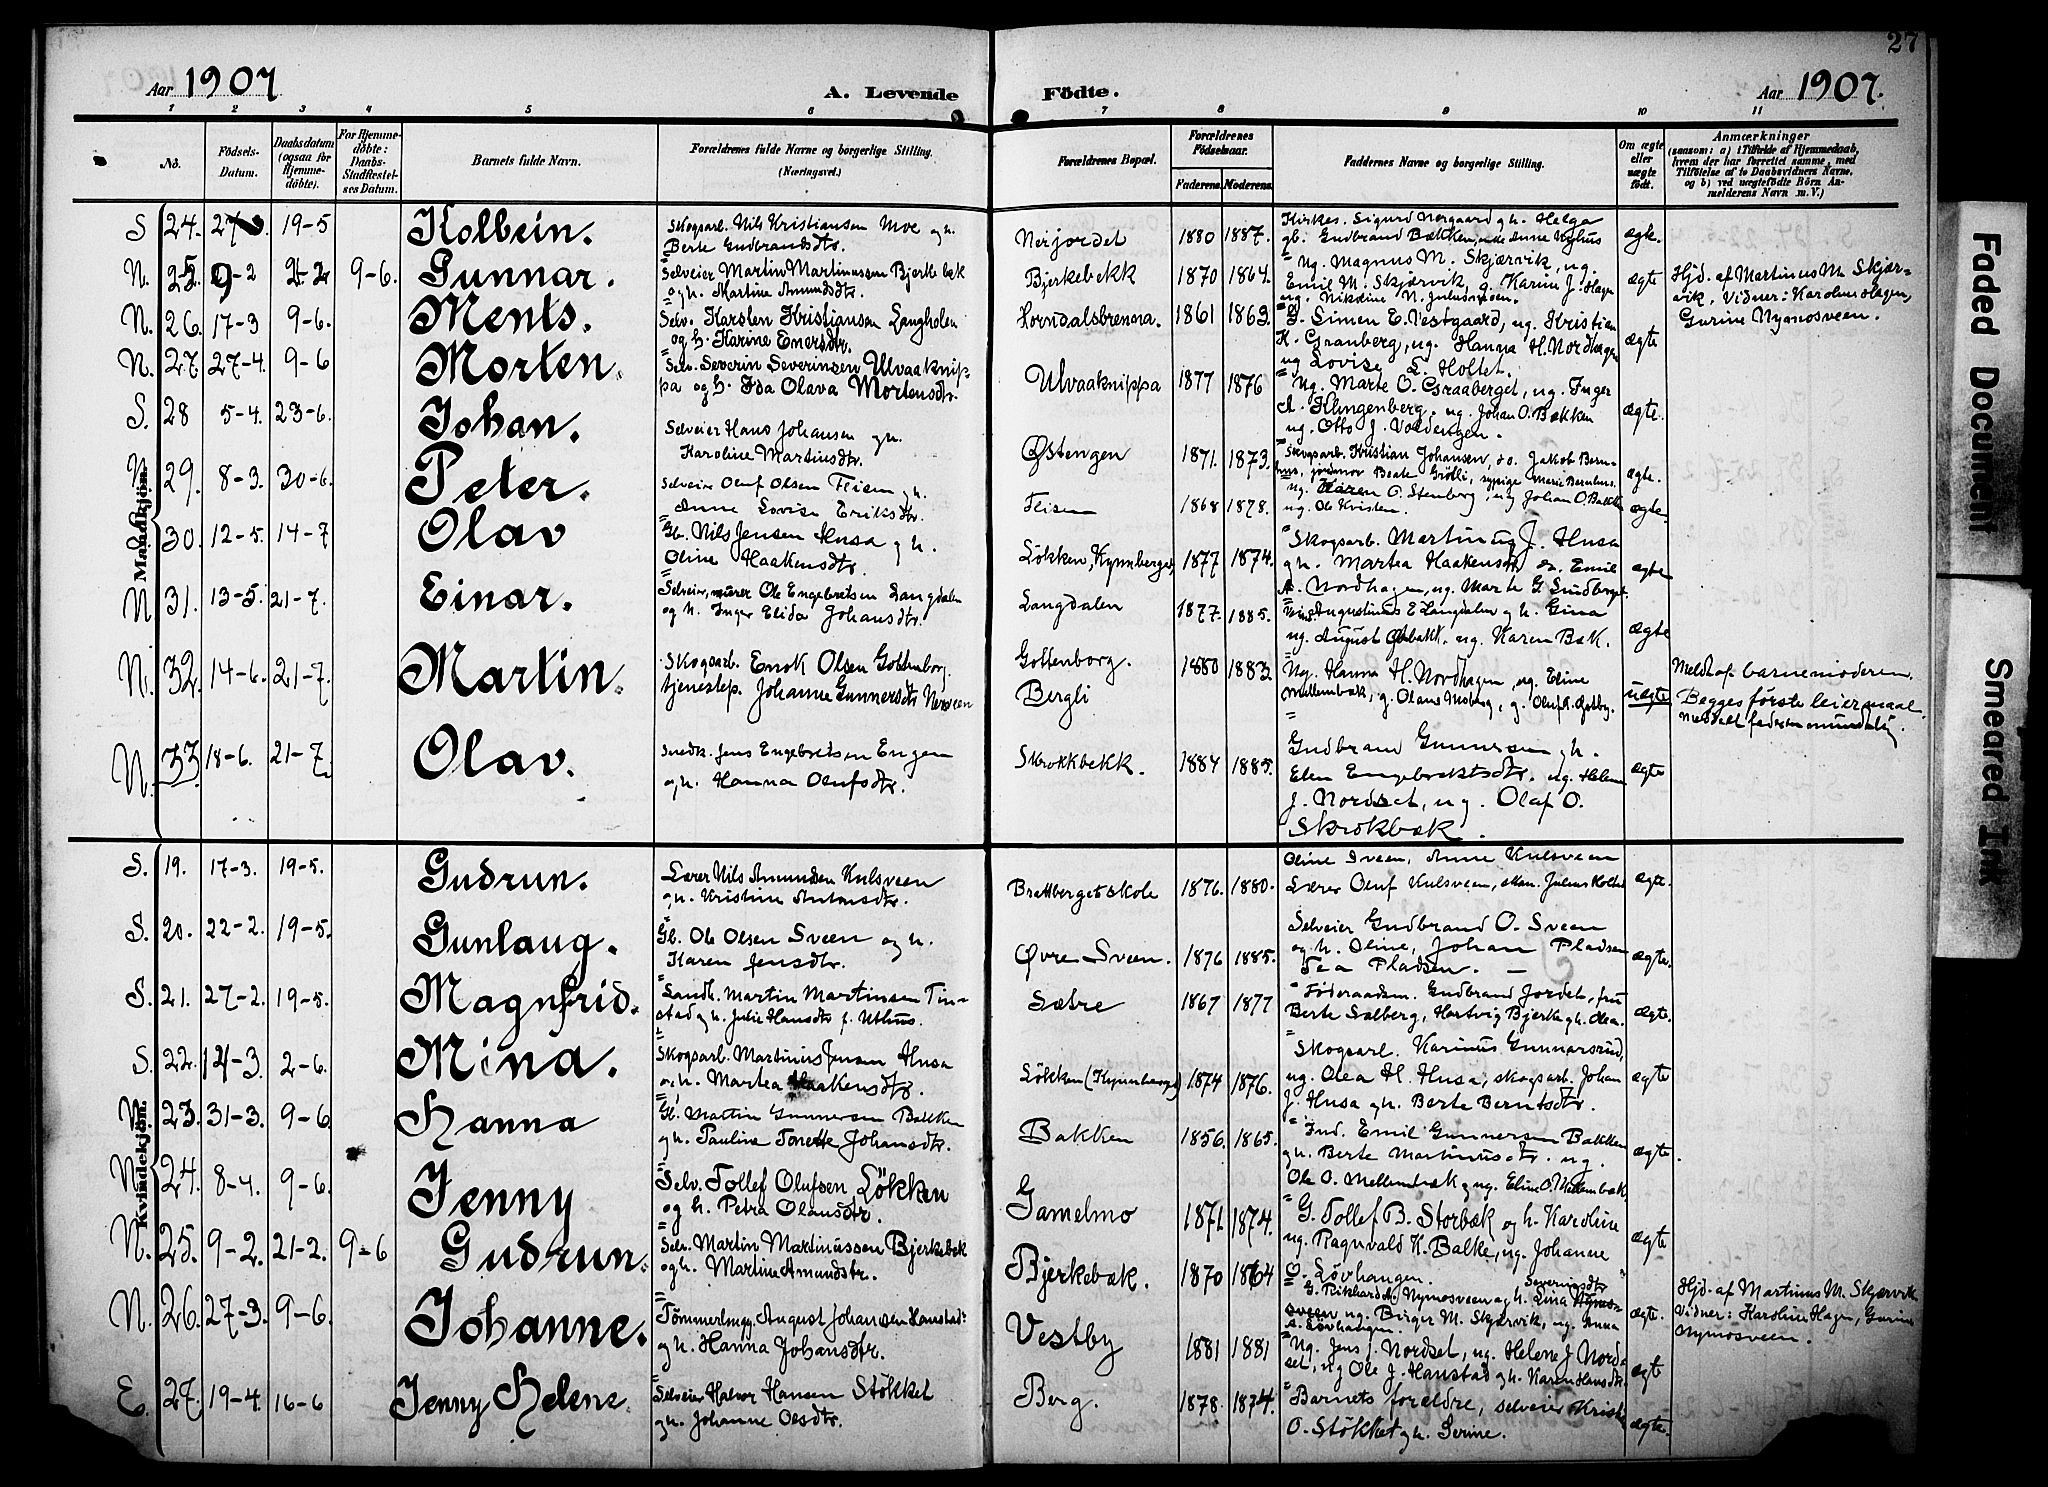 27
Aar 1907
A. Levende Födte.
Aar 1907.
1 2 3 4 5 6 7 8 9 10 11
No.
Födsels-Datum.
Daabsdatum (ogsaa for Hjemmedöbte).
For Hjemmedöbte: Daabs-Stadfæstelses Datum.
Barnets fulde Navn.
Forældrenes fulde Navne og borgerlige Stilling. (Næringsvei.)
Forældrenes Bopæl.
Forældrenes Födselsaar.
Faderens. Moderens.
Faddernes Navne og borgerlige Stilling.
Om ægte eller uægte födt.
Anmærkninger (saasom: a) i Tilfælde af Hjemmedaab, hvem der har forrettet samme, med Tilföielse af to Daabsvidners Navne, og b) ved uægtefödte Börn Anmelderens Navn m. V.)
Mandkjön.
S 24. 19-5 Kolbein. Skogsarb. Nils Kristiansen Moe og h.
Berte Gudbrandsdtr. Nerjordet 1880 1887. Kirkes. Sigurd Norgaard og h. Helga
gb. Gudbrand Bækken, Anne Nyhus ægte.
N. 25. 9-2 9-6. Gunnar. Selveier Martin Martinussen Bjerkebæk
og h. Martine Amundsdtr. Bjerkebekk 1870 1864. Ug. Magnus M. Skjærvik, ug.
Emil M. Skjærvik, g. Karine J. Hagen
ug. Nikoline N. Julussveen. ægte Hjd. af Martinus M. Skjær-
vik, Vidner: Karoline Hagen,
Gurine Nymosveen.
N. 26. 17-3 9-6. Ments. Selv. Karsten Kristiansen Langholen
og h. Karine Enersdtr. Lorndalsbrenna. 1861 1863. G. Simen E. Vestgaard, ug. Kristian
K. Granberg, ug. Hanna H. Nordhagen
ug Lovise L. Holtet. ægte
N. 27. 27-4. 9-6 Morten. Selv. Severin Severinsen Ulvaaknip-
pa og h. Ida Olava Mortensdtr. Ulvaaknippa 1877 1876 Ug. Marte O. Graaberget, ug. Inger
A. Klingenberg, ug. Johan O. Bækken
ug. Otto J. Voldengen. ægte.
S. 28 5-4. 23-6. Johan. Selveier Hans Johansen og h.
Karoline Martinsdtr. Østengen 1871. 1873. Skogsarb. Kristian Johansen, Jakob
jordmor Beate Grölli, sypige Marie ægte.
N 29. 8-3. 30-6. Peter. Selveier Oluf Olsen Teisen og h.
Anne Lovise Eriksdtr. Teisen 1868 1878. ug. Karen O. Stenberg, ug Johan O. Bakken
ug. Ole Kristen. ægte.
S. 30. 12-5. 14-7 Olav Gb. Nils Jensen Husa og h.
Oline Haakensdtr. Lökken, Kynnberget, 1877 1874. Skogsarb. Martinus J. Husa
og h. Martea Haakensdtr Emil
A. Nordhagen, ug. Marte G. Lindberget. ægte
N 31. 13-5. 21-7. Einar. Selveier, murer Ole Engebretsen Langdalen
og h. Inger Elida Johansdtr. Langdalen 1877. 1885. Augustinus E Langdalen og h. Gina
ug. August Østbakk, ug. Karen Bæk. ægte
N. 32. 14-6. 21-7. Martin. Skogsarb. Enok Olsen Gottenborg,
tjenestep. Johanne Gunnersdtr Nersveen Gottenborg.
Bergli 1880 1883 Ug. Hanna H. Nordhagen, ug. Eline
Mellembæk, g. Olaus Moberg, g. Oluf A. Østby. uægte Meldt af barnemoderen.
Begges første leiermaal.
N. 33. 18-6. 21-7. Olav. Snedk. Jens Engebretsen Engen
og h. Hanna Olufsdtr. Skrokkbekk. 1884 1885. Gudbrand Gunnersen og h.
Elen Engebretsdtr. ug. Helene
J. Nordset, ug. Olaf O.
Skrokbæk. ægte
Kvindekjön.
S. 19. 17-3. 19-5. Gudrun. Lærer Nils Amundsen Kulsveen
og h. Kristine Antonsdtr. Brattberget skole 1876. 1880. Oline Sveen, Anne Kulsveen
Lærer Oluf Kulsveen, Julius Koltet ægte.
S. 20. 22-2. 19-5. Gunlaug. Gb. Ole Olsen Sveen og h.
Karen Jensdtr. Øvre Sveen. 1876 1885. Selveier Gudbrand O. Sveen
og h. Oline, Johan Pladsen
Tea Pladsen. ægte.
S. 21. 27-2. 19-5. Magnfrid. Landh. Martin Martinsen Tin-
stad og h. Julie Hansdtr f. Uthus. Sætre 1867 1877 Föderaadsm. Gudbrand Jordet, fru
Berte Sælberg, Hartvig Bjerke og h. Olea. ægte.
S. 22. 14-3. 2-6. Mina. Skogsarb. Martinus Jensen Husa
og h. Martea Haakensdtr. Lökken (Kynnberget) 1874 1876. Skogsarb. Karinus Gunnarsrud,
ug. Olea H. Husa, skogsarb. Johan
J. Husa og h. Berte Berntsdtr. ægte
N. 23. 31-3. 9-6 Hanna Gb. Martin Gunnersen Bakken
og h. Pauline Tonette Johansdtr. Bakken 1856. 1865. Ind. Emil Gunnersen Bakken
og h. Berte Martinusdtr. ug.
Ole O. Mellembæk og ug. Eline O. Mellembæk. ægte.
N. 24. 8-4. 9-6. Jenny Selv. Tollef Olufsen Lökken
og h. Petra Olausdtr. Gamelmo 1871 1874. G. Tollef B. Storbæk og h. Karoline
ug. Ragnvald K. Balke, ug. Johanne
O. Lövhaugen. ægte
N. 25. 9-2. 21-2. 9-6 Gudrun. Selv. Martin Martinussen Bjerkebæk
og h. Martine Amundsdtr. Bjerkebæk. 1870 1864 G. Rikhard A. Nymosveen og h. Lina Severinsdtr
ug. Birger M. Skjærvik, ug. Anna
A. Lövhaugen. ægte. Hjd. af Martinus M. Skjærvik
Vidner: Karoline Hagen, Gurine
Nymosveen.
N. 26. 27-3. 9-6. Johanne. Tömmerhugg. August Johansen Hanstad
og h. Hanna Johansdtr. Vestby 1881 1881 Ug. Jens J. Nordset, ug. Helene J Nord-
set, ug Ole J. Hanstad og h. Karen Hansdtr. ægt
E. 27. 19-4. 16-6 Jenny Helene. Selveier Halvor Hansen Stökket
og h. Johanne Olsdtr. Berg. 1878. 1874. Barnets forældre, selveier Krist.
O. Stökket og h. Serine. ægte.
Faded Document
Smeared Ink